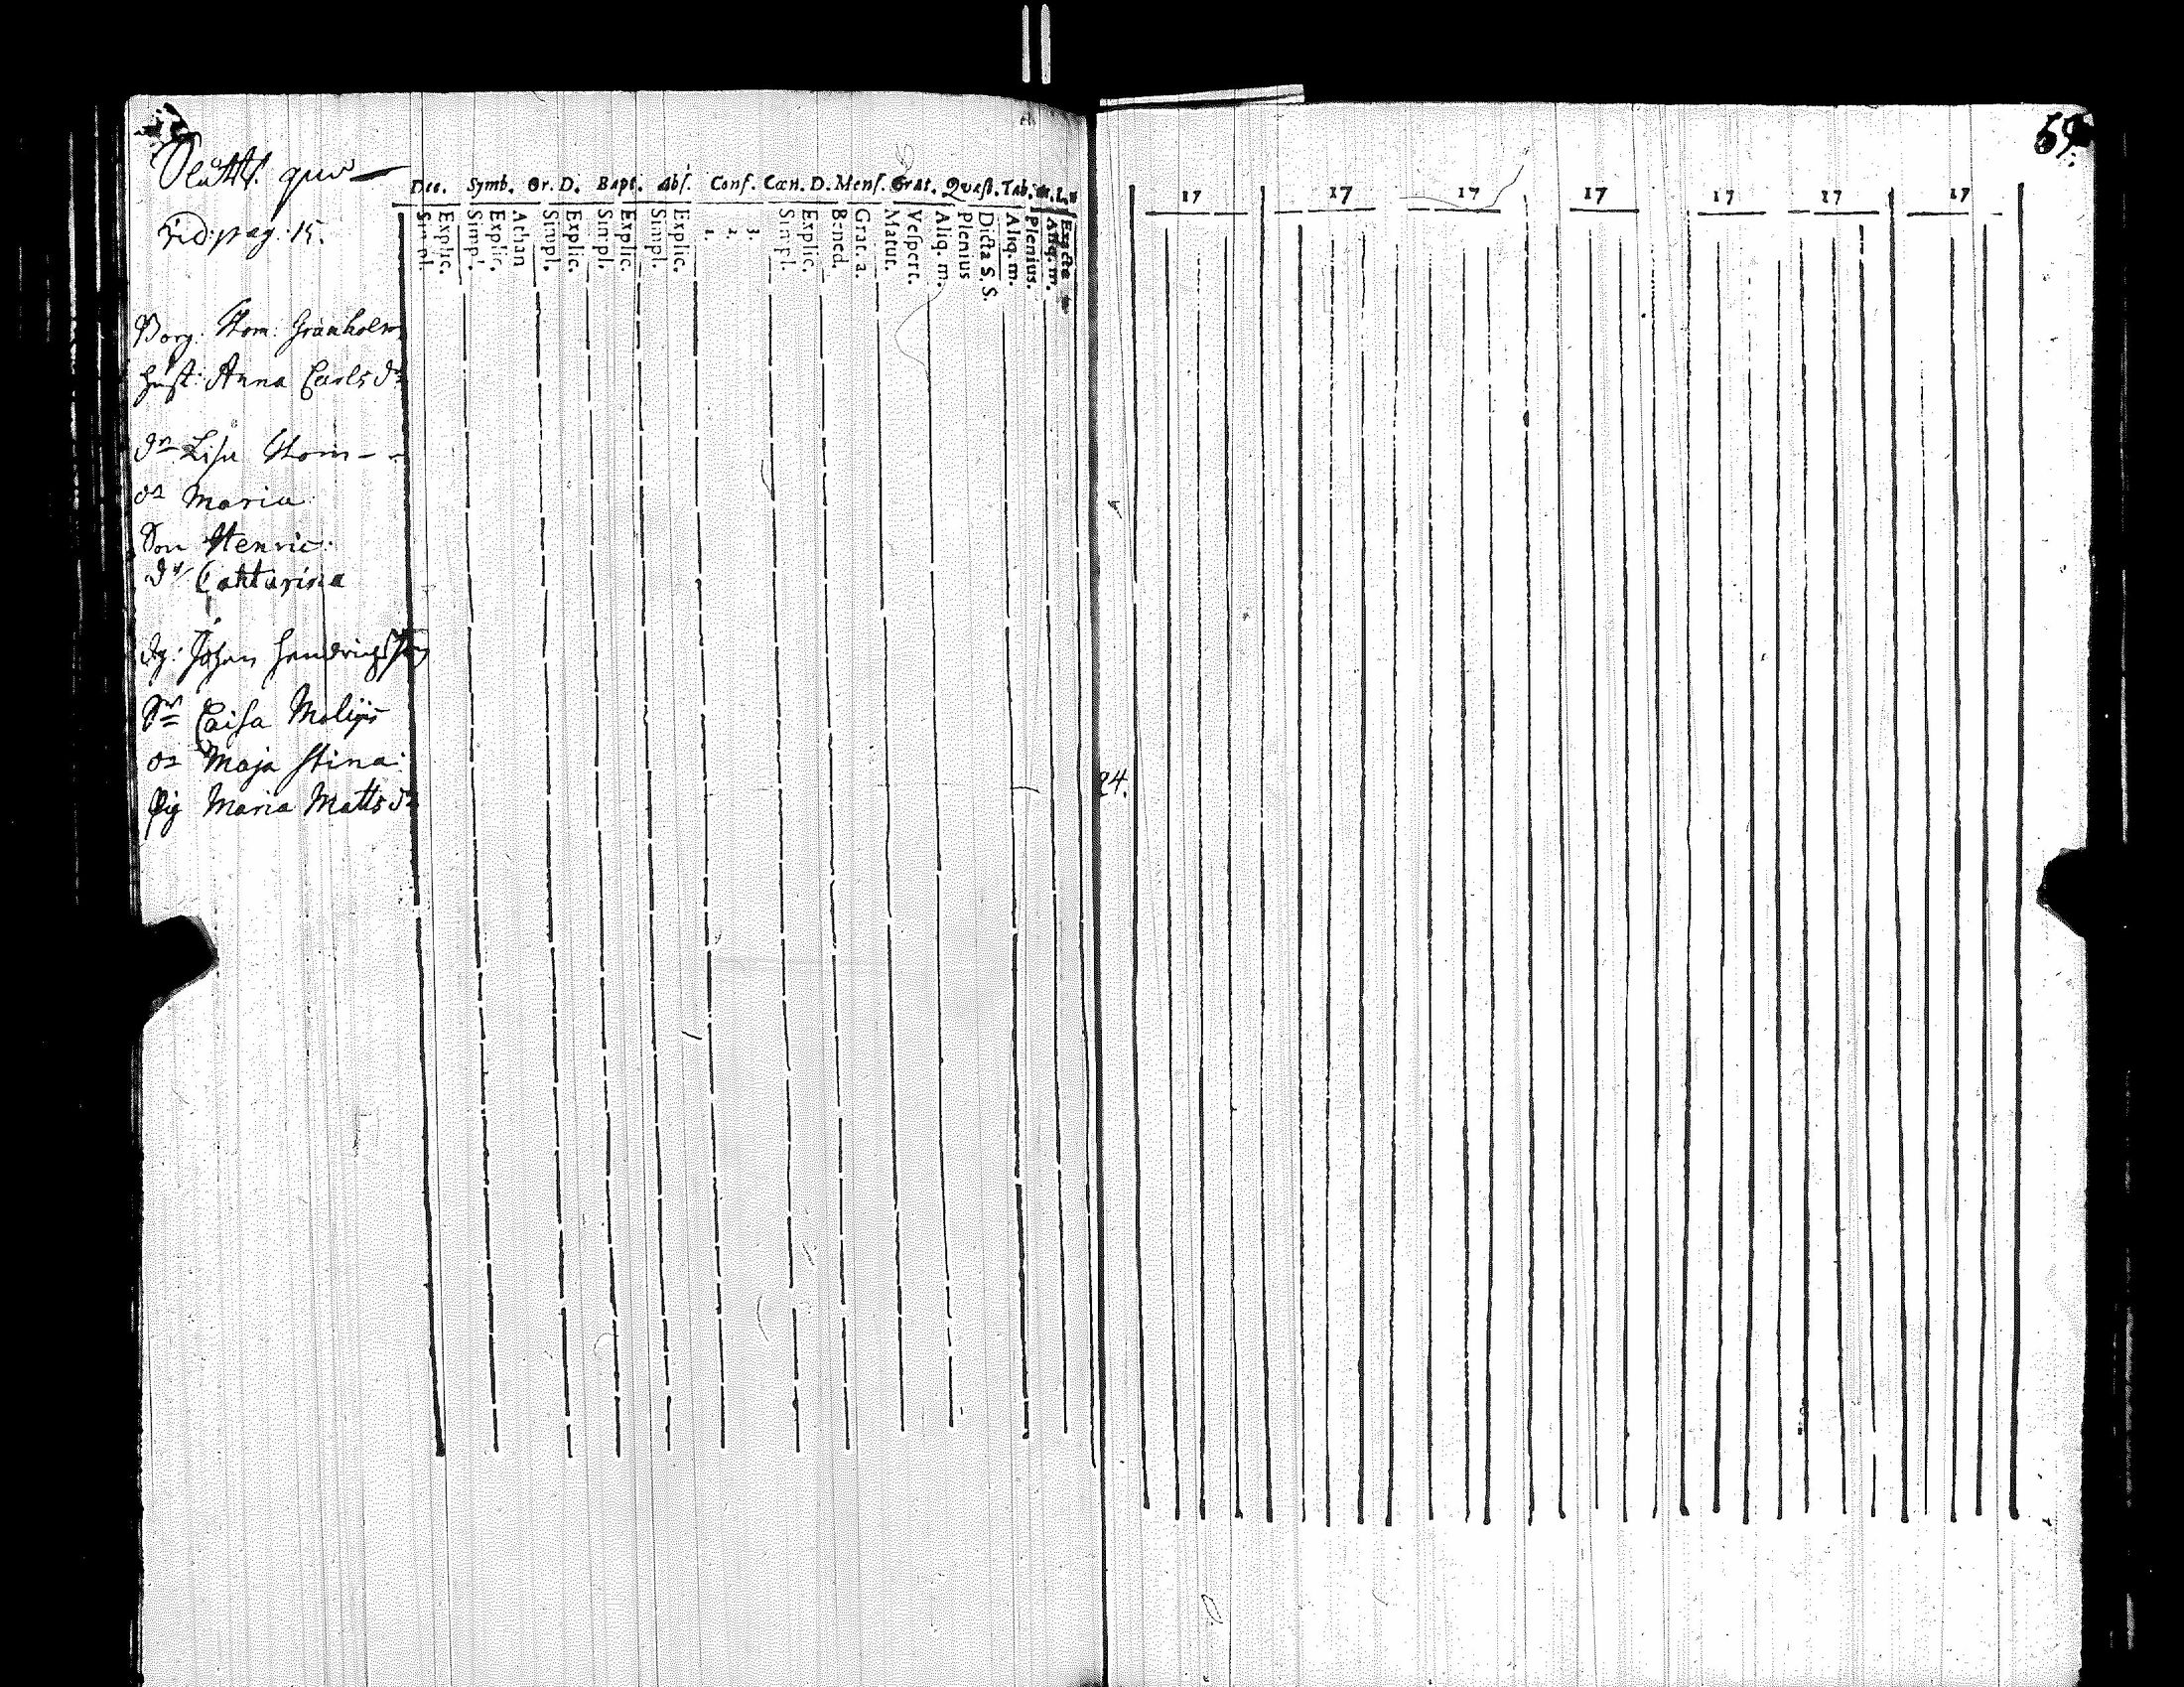 59
vid: pag: 15.
Dec. Symb. Or. D. Bapt. Abs. Conf. Cœn. D. Mens. Grat. Quæst. Tab.
Simpl. Explic. Simpl. Explic. Athan Simpl. Explic. Simpl. Explic. Simpl. Explic. 1. 2. 3. Simpl. Explic. Bened. Grat. a. Matut. Vespert. Aliq. m. Plenius Dicta S. S. Aliq. m. Plenius. Aliq. m. Exacte
17 17 17 17 17 17 17
Borg: Thom: Granholm
Hust: Anna Carls dr
dr Lisa Thom - -
dr Maria
Son Henric:
dr Catharina
Johan Hendrigsson
Caisa Malijs
dr Maja Stina:
Pig Maria Matts dr
24.